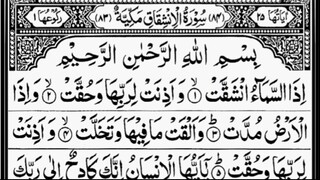 اٰيَاتُهَا ٢٥ (٨٤) سُوْرَةُ الْاِنْشِقَاقِ مَكِّيَّةٌ (٨٣) رُكُوْعُهَا ١
بِسْمِ اللّٰهِ الرَّحْمٰنِ الرَّحِيْمِ
اِذَا السَّمَآءُ انْشَقَّتْ ۙ‏﴿۱﴾ وَاَذِنَتْ لِرَبِّهَا وَحُقَّتْ ۙ‏﴿۲﴾ وَاِذَا
الْاَرْضُ مُدَّتْ ۙ‏﴿۳﴾ وَاَلْقَتْ مَا فِيْهَا وَتَخَلَّتْ ۙ‏﴿۴﴾ وَاَذِنَتْ
لِرَبِّهَا وَحُقَّتْ ؕ‏﴿۵﴾ يٰۤاَيُّهَا الْاِنْسَانُ اِنَّكَ كَادِحٌ اِلٰى رَبِّكَ